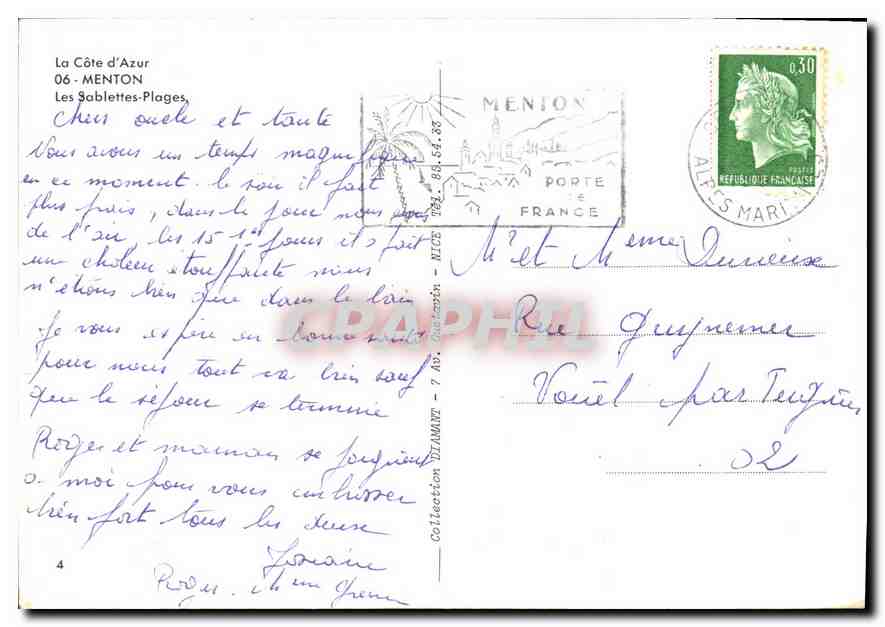 La Côte d'Azur
06 - MENTON
Les Sablettes-Plages
Chers oncle et tante
Nous avons un temps magnifique
en ce moment. le soir il fait
plus frais, dans le jour nous avons
de l'air, les 15 1er jours il a fait
une chaleur étouffante nous
n'étions bien que dans le bain
Je vous espère en bonne santé
pour nous tout va bien sauf
que le séjour se termine
Roger et maman se joignent
a moi pour vous embrasser
bien fort tous les deux
Josiane
Roger. Mme
4
Collection DIAMANT - 7 Av. Gustavin - NICE Tél. 88.54.33
MENTON
PORTE
DE
FRANCE
0,30
POSTES
REPUBLIQUE FRANÇAISE
ALPES MARIT
Mr et Mme Durieux
Rue Guynemer
Vouël par Tergnier
02
CPAPHIL